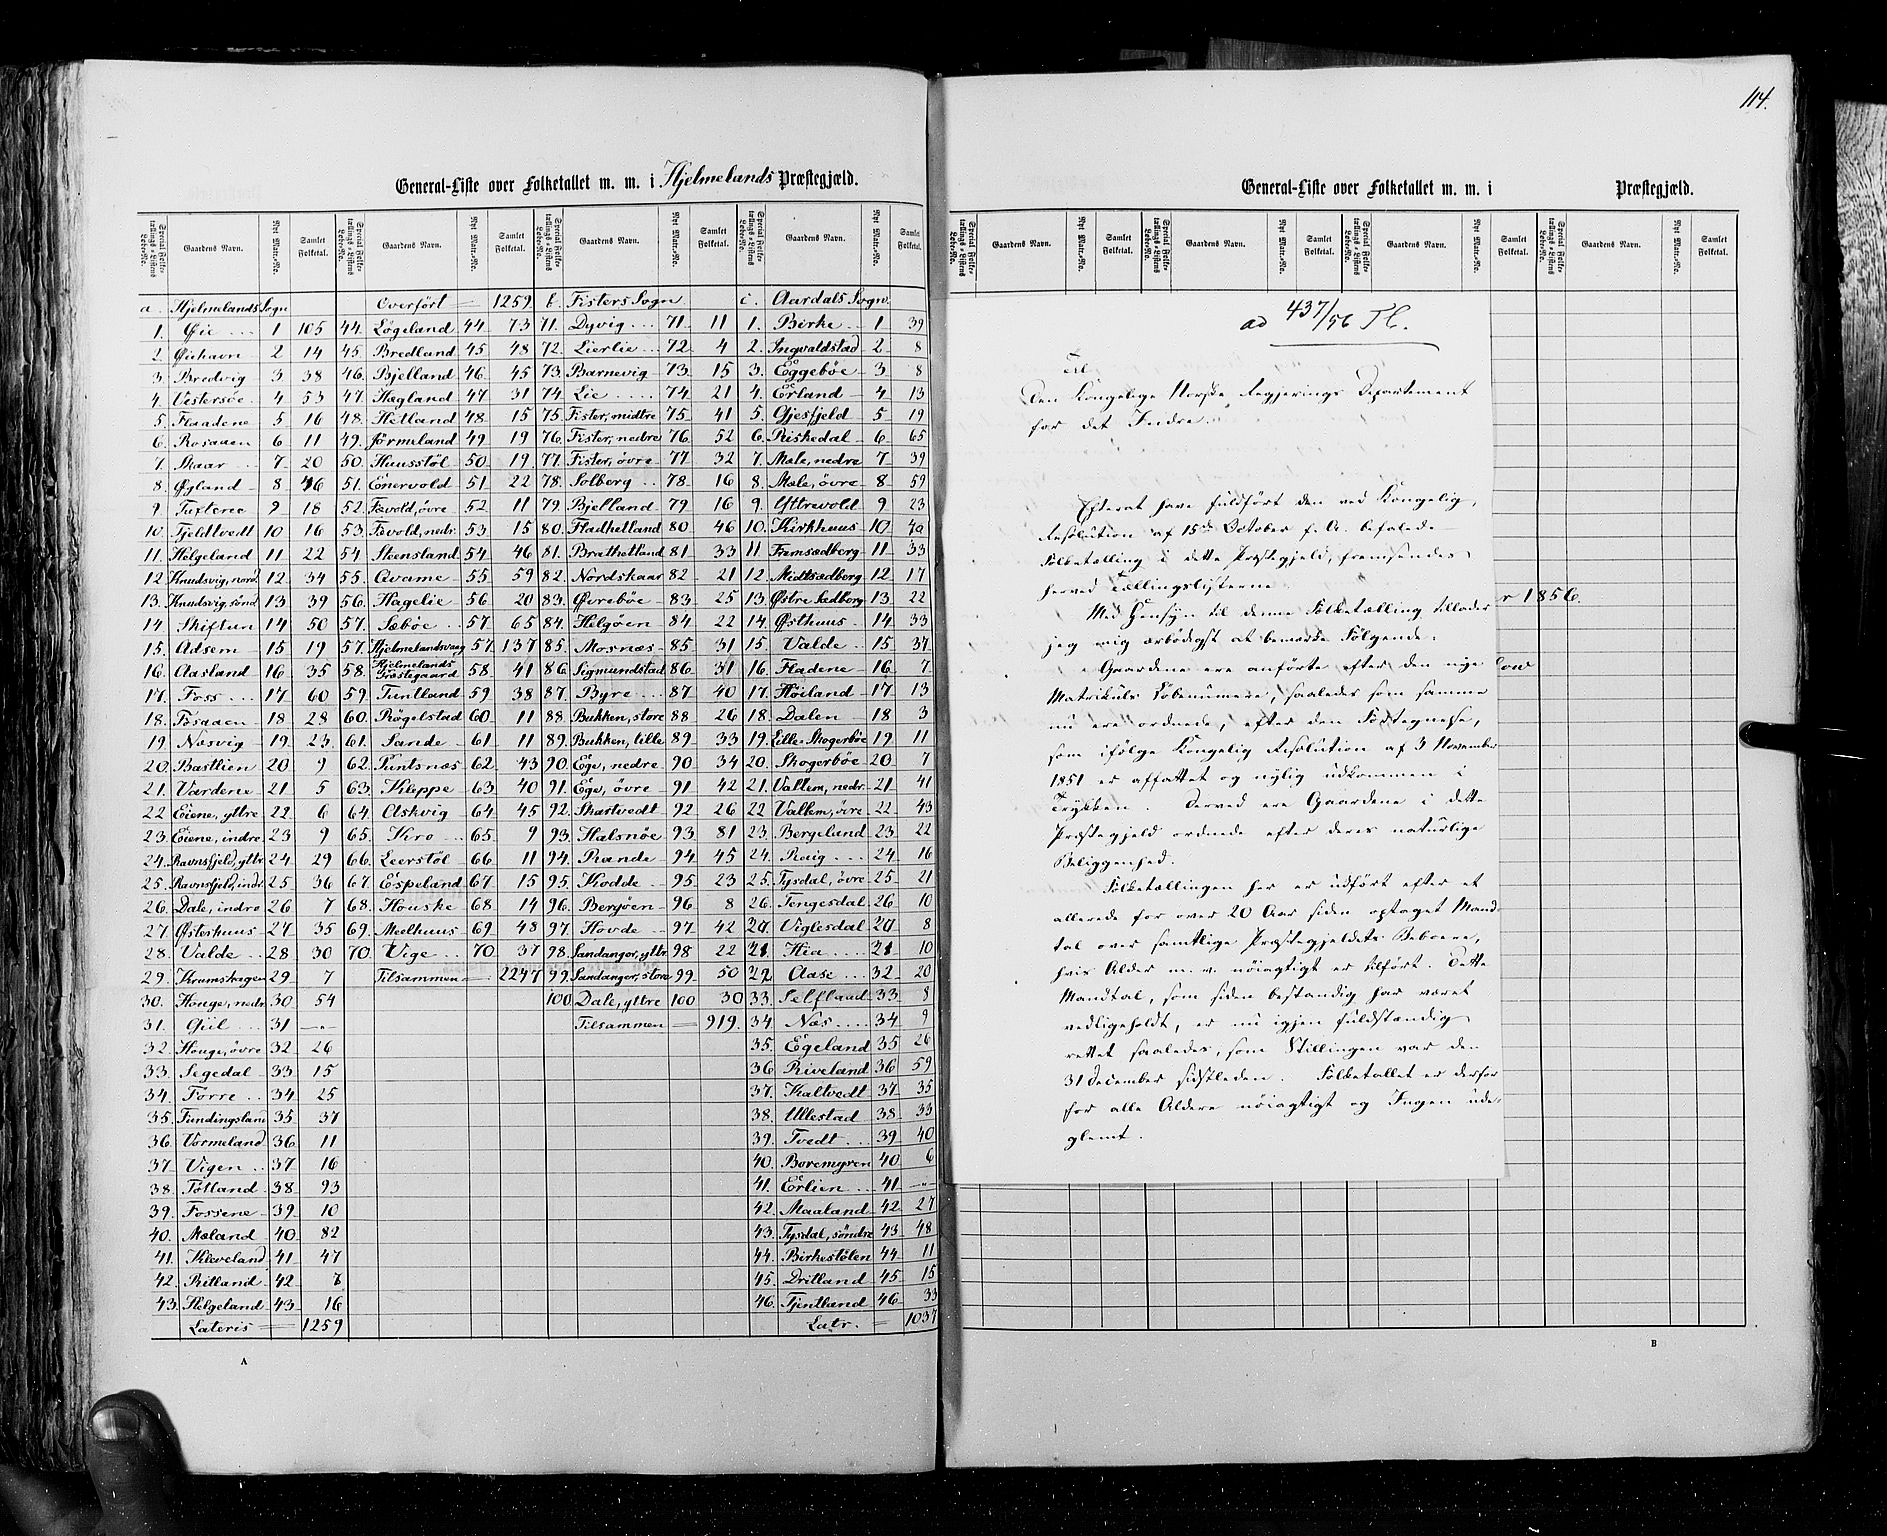 114.
General-Liste over Folketallet m. m. i Hjelmelands Præstegjæld.
Special Folketællings-Listens Løbe-No. Gaardens Navn. Nyt Matr.-No. Samlet Folketal. Special Folketællings-Listens Løbe-No. Gaardens Navn. Nyt Matr.-No. Samlet Folketal. Special Folketællings-Listens Løbe-No. Gaardens Navn. Nyt Matr.-No. Samlet Folketal. Special Folketællings-Listens Løbe-No. Gaardens Navn. Nyt Matr.-No. Samlet Folketal.
a. Hjelmelands Sogn
1. Øie 1 105
2. Øiehavn 2 14
3. Bredvig 3 38
4. Vestersøe 4 53
5. Flaadene 5 16
6. Rosaaen 6 11
7. Skaar 7 20
8. Øyland 8 46
9. Tuftene 9 18
10. Fjeldtvedt 10 16
11. Helgeland 11 22
12. Knudsvig, nord. 12 34
13. Knudsvig, sönd. 13 39
14. Skiftun 14 50
15. Adsem 15 19
16. Aasland 16 35
17. Foss 17 60
18. Fosaaen 18 28
19. Næsvig 19 23
20. Bastlien 20 9
21. Vardene 21 5
22. Eiene, yttre 22 6
23. Eiene, indre 23 9
24. Ravnsfjeld, yttr. 24 29
25. Ravnsfjeld, indr. 25 36
26. Dale, indre 26 7
27. Østerhuus 27 35
28. Valde 28 30
29. Kramshagen 29 7
30. Houge, nedr. 30 54
31. Giil 31 -"-
32. Houge, övre 32 26
33. Segedal 33 15
34. Førre 34 25
35. Fundingsland 35 37
36. Vormeland 36 11
37. Vigen 37 16
38. Tøtland 38 93
39. Fossene 39 10
40. Mæland 40 82
41. Kleveland 41 47
42. Ritland 42 7
43. Helgeland 43 16
Lateris 1259
Overført 1259
44. Lögeland 44 73
45. Bredland 45 48
46. Bjelland 46 45
47. Hægland 47 31
48. Hetland 48 15
49. Jörmeland 49 19
50. Huusstöl 50 19
51. Enervold 51 22
52. Tævold, övre 52 11
53. Tævold, nedr. 53 15
54. Steensland 54 46
55. Qvame 55 59
56. Hagelie 56 20
57. Sæböe 57 65
57. Hjelmelandsvaag 57 137
58. Hjelmelands Præstegaard 58 41
59. Tuntland 59 38
60. Rögelstad 60 11
61. Sande 61 11
62. Puntsnæs 62 43
63. Kleppe 63 40
64. Askvig 64 45
65. Kro 65 9
66. Leerstöl 66 11
67. Espeland 67 15
68. Houske 68 14
69. Meelhuus 69 43
70. Vige 70 37
Tilsammen 2247
b. Fisters Sogn
71. Dyvig 71 11
72. Lierlie 72 4
73. Barnevig 73 15
74. Lie 74 21
75. Fister, midtre 75 41
76. Fister, nedre 76 52
77. Fister, övre 77 32
78. Solberg 78 16
79. Bjelland 79 16
80. Fladhetland 80 46
81. Brathetland 81 33
82. Nordskaar 82 21
83. Øvreböe 83 25
84. Helgöen 84 22
85. Mosnæs 85 31
86. Sigmundstad 86 31
87. Byre 87 40
88. Bukken, store 88 26
89. Bukken, lille 89 33
90. Ege, nedre 90 34
91. Ege, övre 91 42
92. Skartvedt 92 26
93. Halsnöe 93 81
94. Rande 94 45
95. Kodde 95 23
96. Bergöen 96 8
97. Hovde 97 42
98. Sandanger, yttr. 98 22
99. Sandanger, store 99 50
100. Dale, yttre 100 30
Tilsammen 919.
c. Aardals Sogn.
1. Birke 1 39
2. Ingvaldstad 2 8
3. Eggeböe 3 8
4. Erland 4 13
5. Gjesfjeld 5 19
6. Riskedal 6 65
7. Mæle, nedre 7 39
8. Mæle, övre 8 59
9. Yttrevold 9 23
10. Kirkhuus 10 40
11. Framsædberg 11 33
12. Midtsædberg 12 17
13. Østre Sædberg 13 22
14. Østhuus 14 33
15. Valde 15 37
16. Fladene 16 7
17. Höiland 17 13
18. Dalen 18 3
19. Lille-Skogerböe 19 11
20. Skogerböe 20 7
21. Vallem, nedr. 21 41
22. Vallem, övre 22 43
23. Bergeland 23 22
24. Raig 24 16
25. Tysdal, övre 25 21
26. Tengesdal 26 10
Viglesdal 8
Hia 10
Aase 32 20
33. Selfland 33 8
34. Næs 34 9
35. Egeland 35 26
36. Riveland 36 59
37. Kaltvedt 37 35
38. Ullestad 38 33
39. Tvedt 39 40
40. Boremyren 40 6
41. Erlien 41 -"-
42. Maaland 42 27
43. Tysdal, söndre 43 48
44. Birkestölen 44 11
45. Dritland 45 15
46. Tjentland 46 33
Latr. 1037
A
General-Liste over Folketallet m. m. i Præstegjæld.
Special Folketællings-Listens Løbe-No. Gaardens Navn. Nyt Matr.-No. Samlet Folketal. Special Folketællings-Listens Løbe-No. Gaardens Navn. Nyt Matr.-No. Samlet Folketal. Special Folketællings-Listens Løbe-No. Gaardens Navn. Nyt Matr.-No. Samlet Folketal. Special Folketællings-Listens Løbe-No. Gaardens Navn. Nyt Matr.-No. Samlet Folketal.
ad 437/56
Til
Den Kongelige Norske Regjerings Departement
for det Indre.
Efterat have fuldfört den ved Kongelig
Resolution af 15de October f. A. befalede
Folketælling i dette Præstegjeld, fremsendes
herved Tællingslisterne
Med Hensyn til denne Folketælling tillader
jeg mig ærbödigst at bemærke Fölgende:
Gaardene ere anförte efter den nye
Matrikuls Löbenumere, saaledes som samme
nu ere ordnede, efter den Fortegnelse,
som ifölge Kongelig Resolution af 3 November
1851 er affattet og nylig udkommen i
Trykken. Derved ere Gaardene i dette
Præstegjeld ordnede efter deres naturlige
Beliggenhed.
Folketællingen her er udfört efter et
allerede for over 20 Aar siden optaget Mand-
tal over samtlige Præstegjeldets Beboere,
hvis Alder m. v. nöiagtigt er tilfört. Dette
Mandtal, som siden bestandig har været
vedligeholdt, er nu igjen fuldstændig
rettet saaledes, som Stillingen var den
31 December sidstleden. Folketallet er derfor
for alle Aldere nöiagtigt og Ingen ude-
glemt.
r 1856.
B